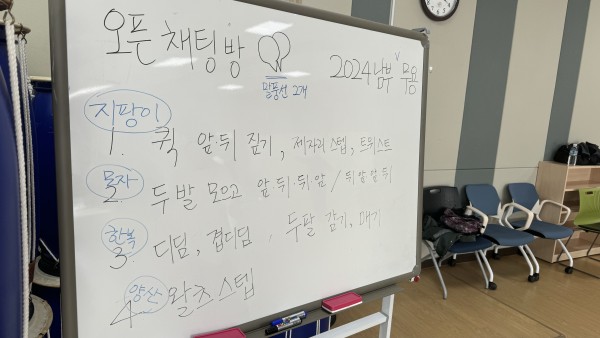 오픈 채팅방
말풍선 2개
2024 남부 ∨ 무용
지팡이
1. 퀵 앞·뒤 짚기, 제자리 스텝, 트위스트
모자
2. 두발 모으고 앞·뒤·뒤·앞 / 뒤 앞 앞 뒤
한복
3. 디딤, 겹디딤, 두팔 감기, 매기
양산
4 왈츠 스텝